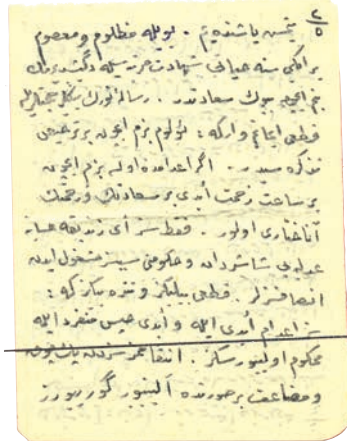 ٢
٥
يتمش ياشنده‌يم . بويله مظلوم و معصوم
بر ايكى سنه حياتى شهادت مرتبه‌سيله دگيشديرمك
بنم ايچون بيوك سعادتدر . رساله نورك
قطعى ايمانم وار كه : ئولوم بزم ايچون بر ترخيص
تذكره‌سيدر . اگر اعدام ده اولسه بزم ايچون
بر ساعت زحمت ابدى بر سعادتك و رحمتك
آناختارى اولور . فقط سز اى زنديقه حسابنه
عدليه‌يى شاشيردان و حكومتى سببسز مشغول ايدن
انصافسزلر . قطعى بيليكز و تتره‌ييكز كه :
سز اعدام ابدى ايله و ابدى حبس منفرد ايله
محكوم اولييورسكز . انتقاممز سزدن پك چوق
و مضاعف بر صورتده آلينيور گورييورز